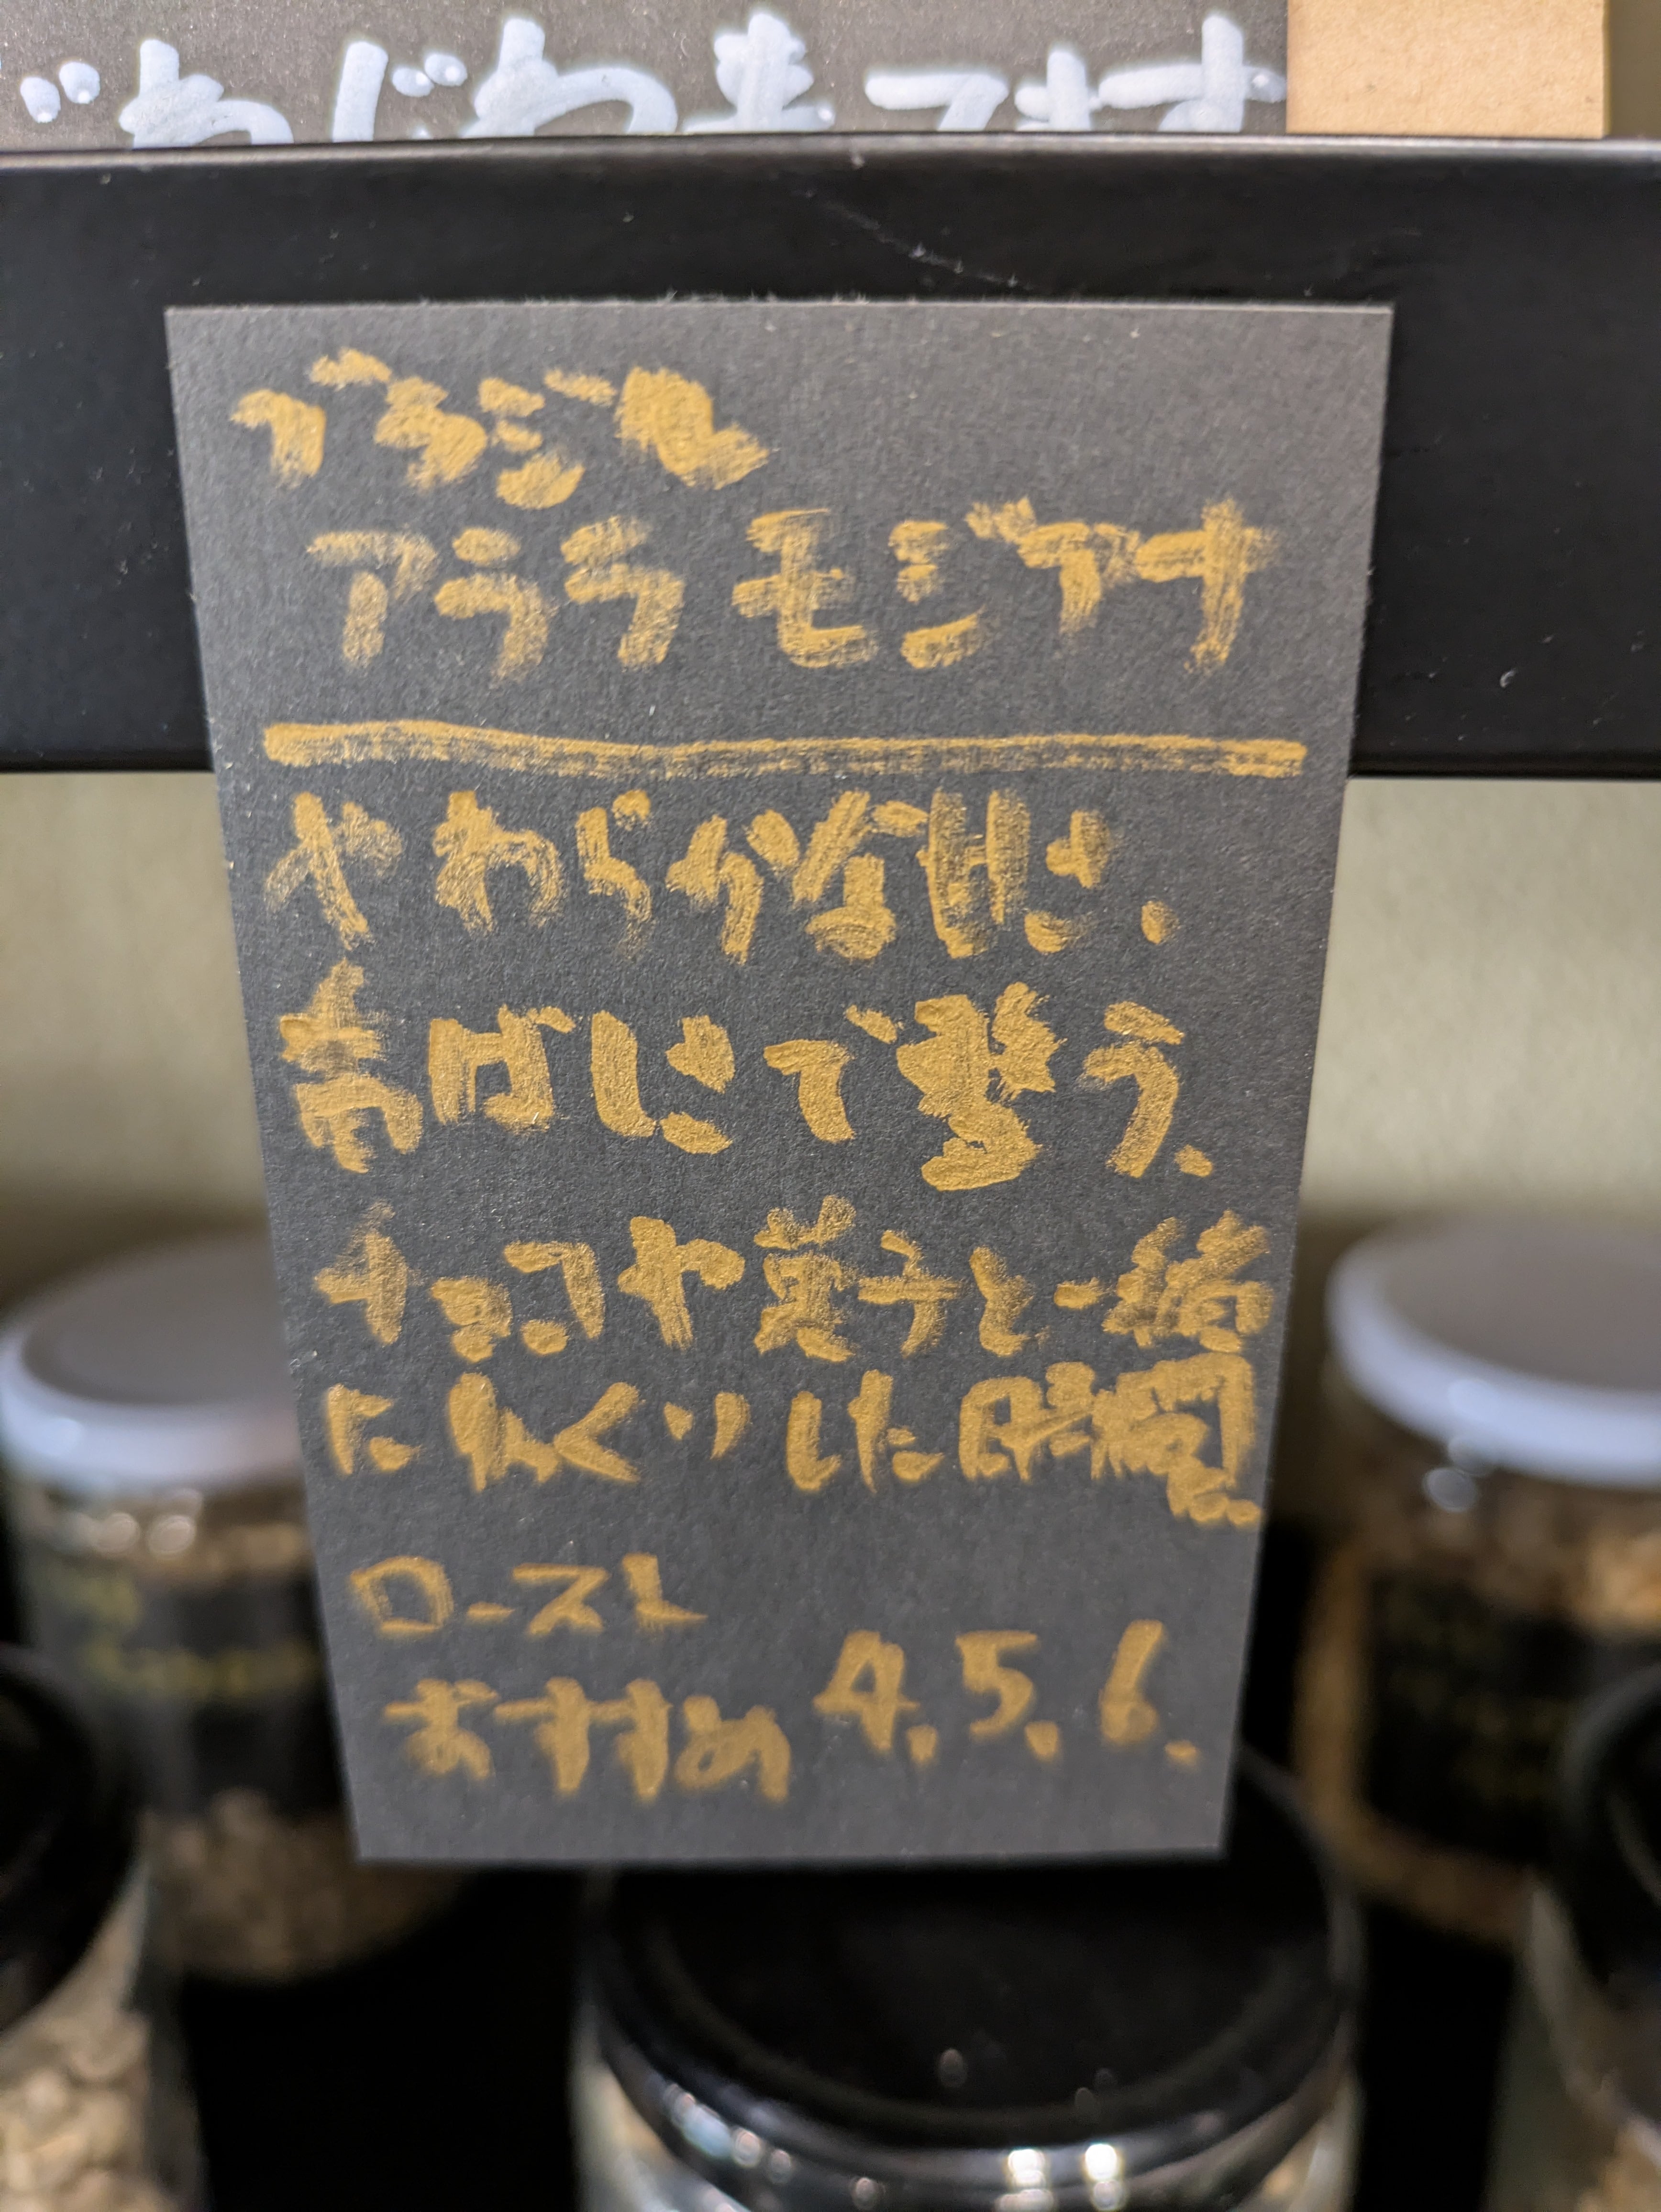 ブラジル
アララモジアナ
やわらかな甘さ、
香ばしさで整う、
ナッツや菓子と一緒
にゆっくりした時間。
ロースト
おすすめ 4.5.6.